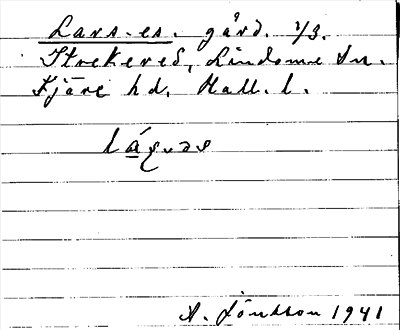 Lars-es. gård. 1/3.
Strekered, Lindome sn.
Fjäre hd. Hall. l.
A. Jönsson 1941